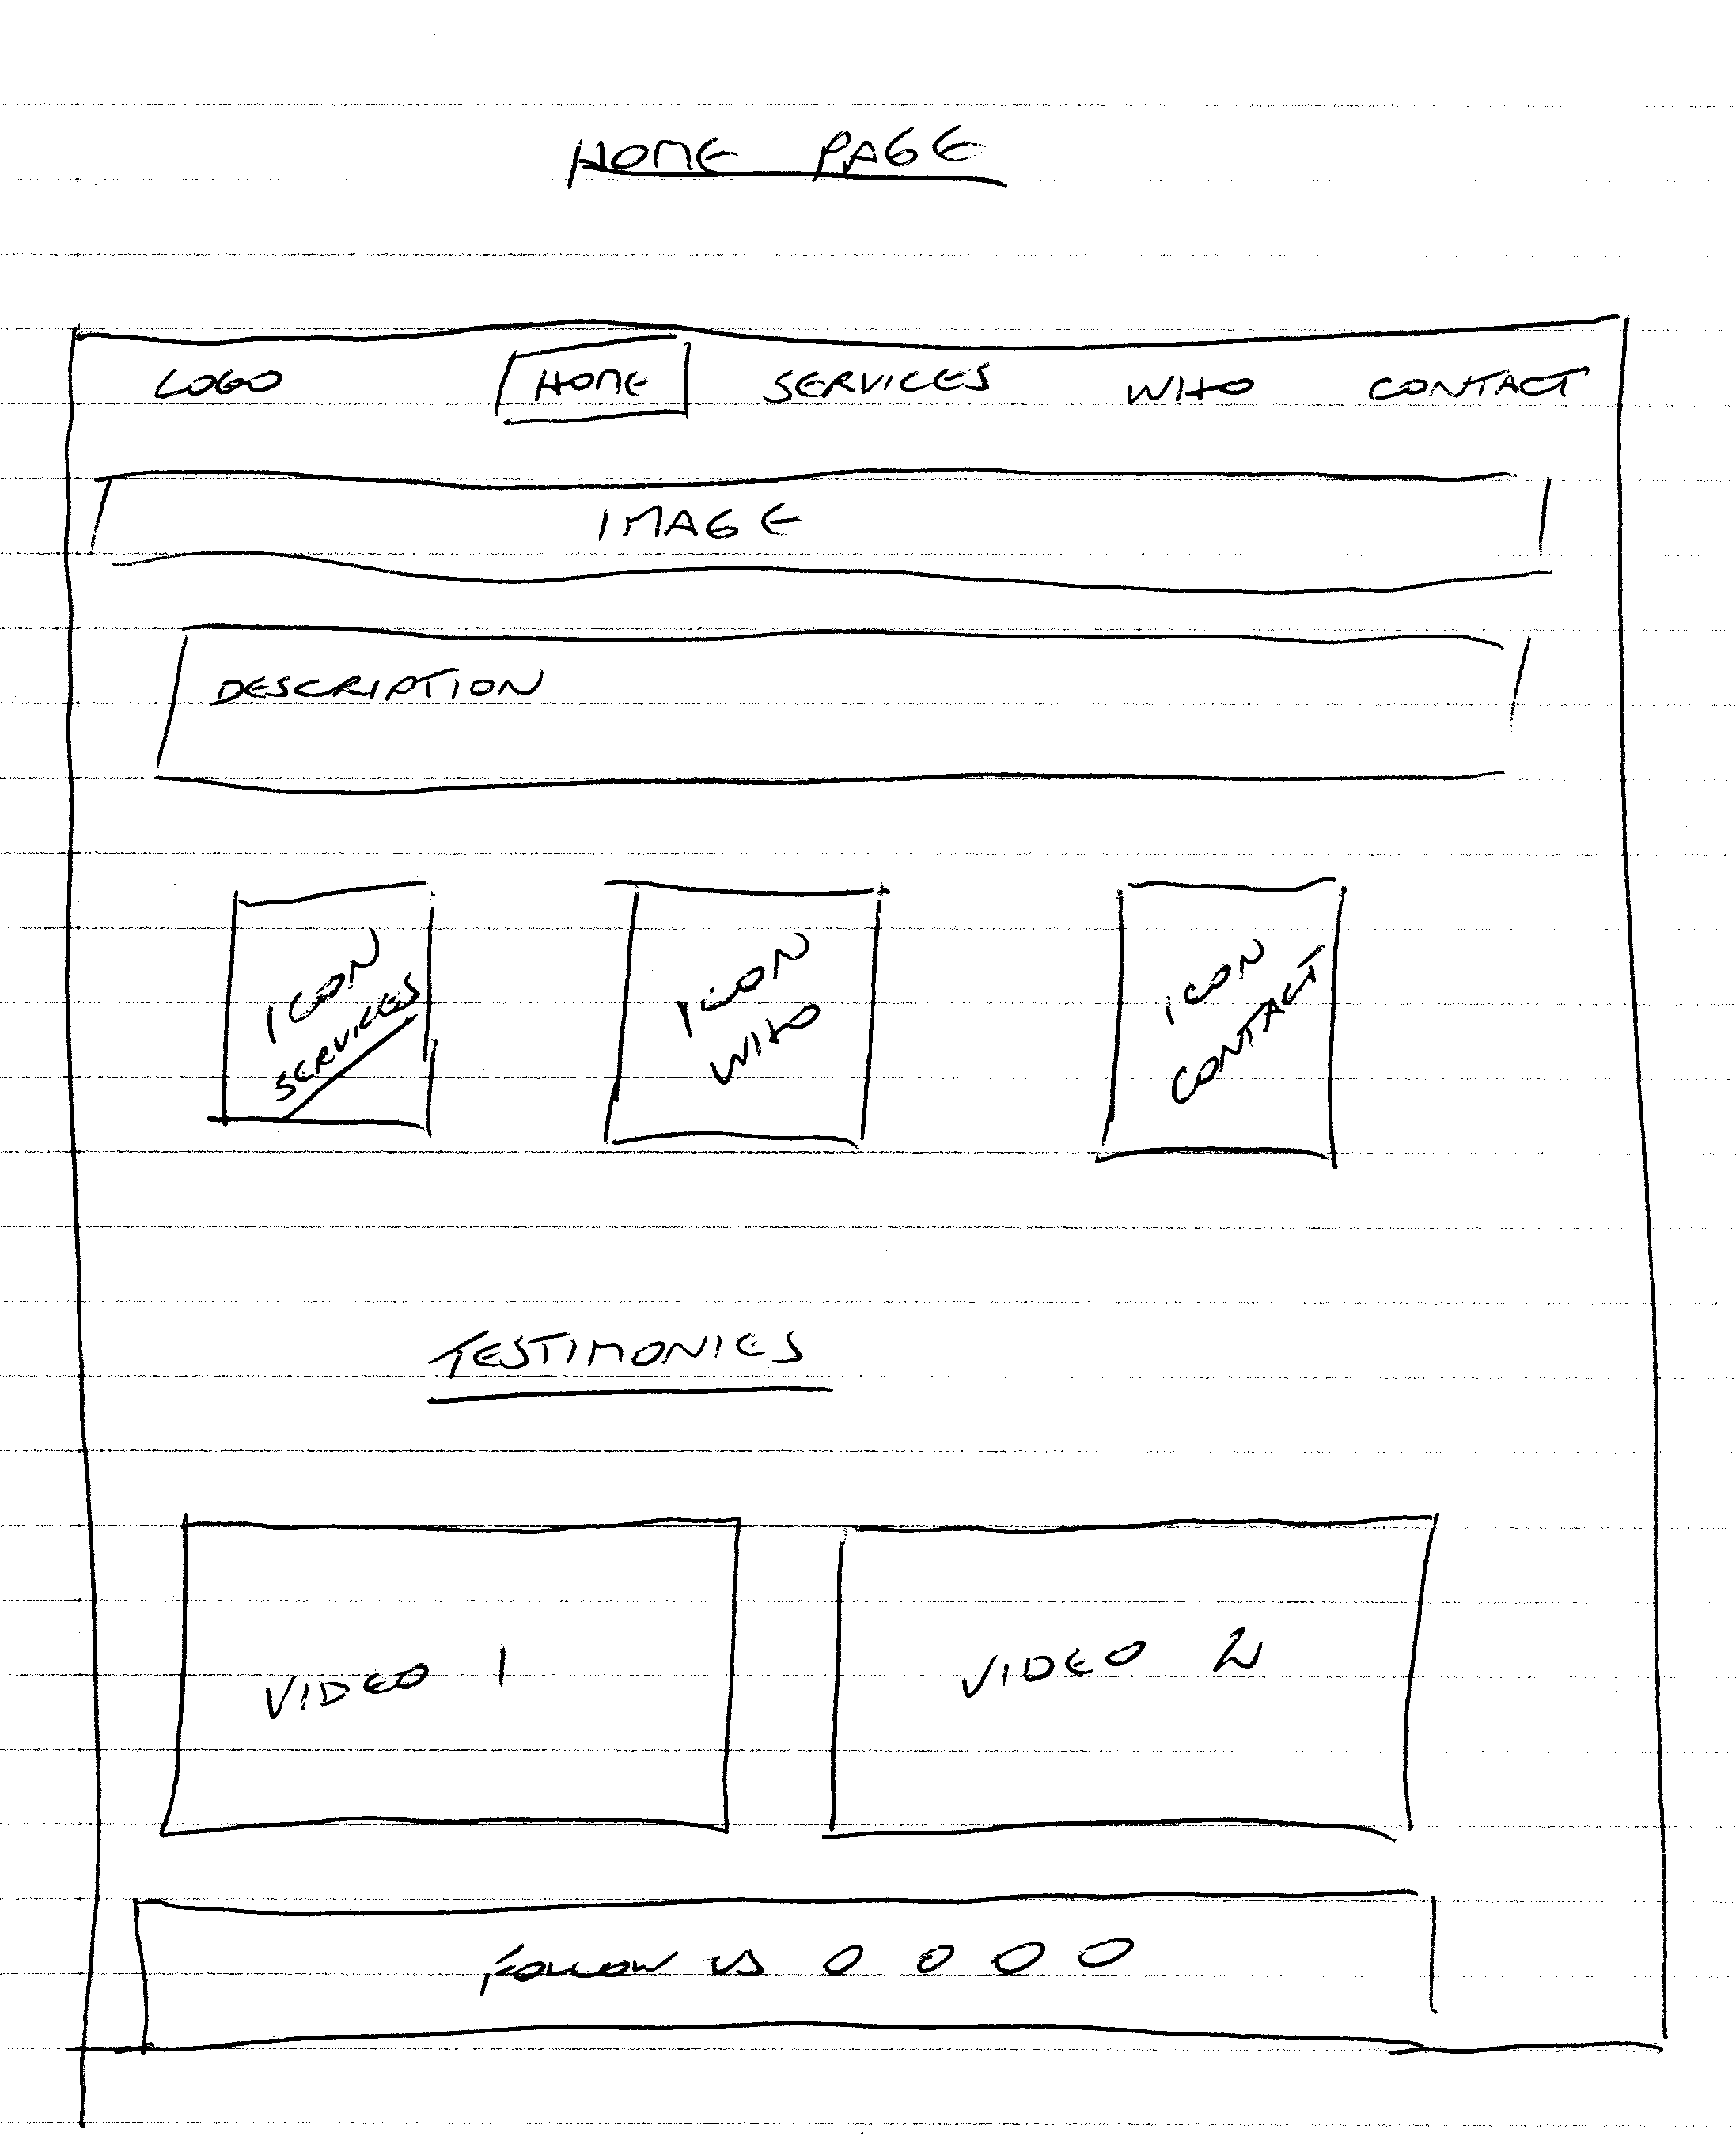 HOME PAGE
LOGO HOME SERVICES WHO CONTACT
IMAGE
DESCRIPTION
ICON SERVICES
ICON WHO
ICON CONTACT
TESTIMONIES
VIDEO 1 VIDEO 2
FOLLOW US O O O O